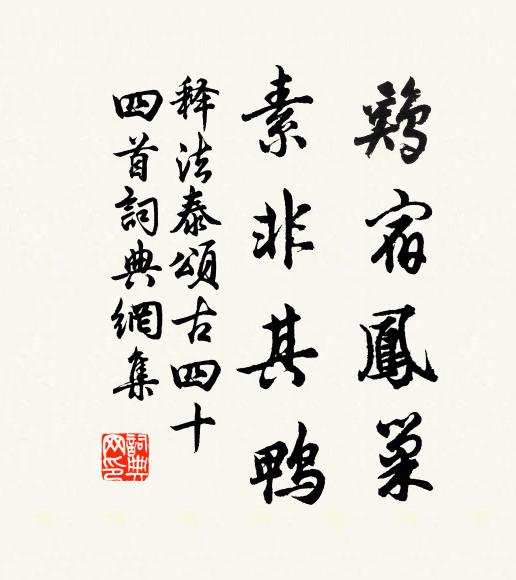 鷄宿鳳巢
素非其鴨
释法泰頌古四十
四首詞典網集
詞典網印